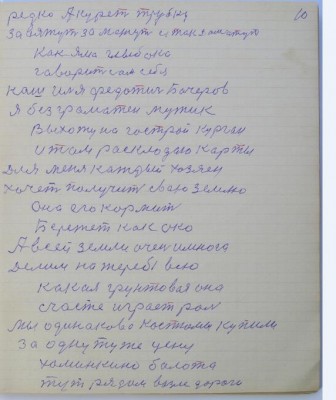 10
редко Акурет трубку
За
Как яма глыбока
гаварит сам себя
наш имя федотич Бочеров
Я без граматен мужик
Выхожу на гострой Курган
и там раскладаю карты
Для меня каждый хозяен
хочет получит сваю землю
Она его кормит
Бережет как око
А всей земли очен немнога
Делим на жереби всю
Какая грунтовая она
счасте играет рол
мы одинаково костюмы купили
За одну туже цену
болота
тут рядам возле дороги